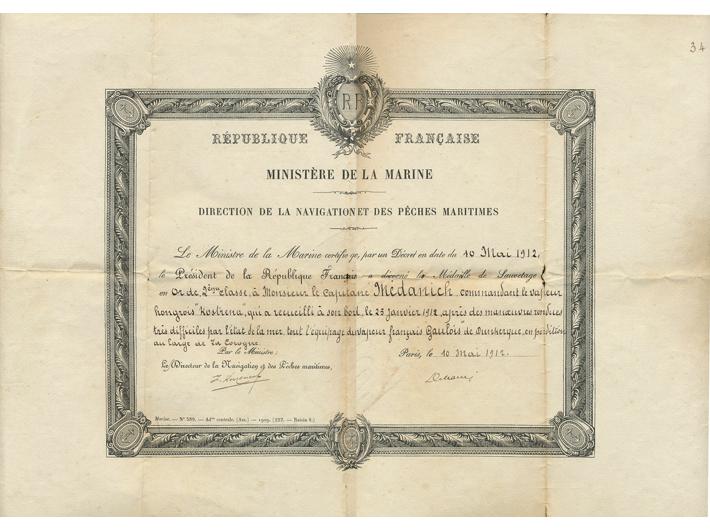 34
RF
RÉPUBLIQUE FRANÇAISE
MINISTÈRE DE LA MARINE
DIRECTION DE LA NAVIGATION ET DES PÊCHES MARITIMES
Le Ministre de la Marine certifie, par un Décret en date du 10 Mai 1912,
le Président de la République Français a décerné la Médaille de Sauvetage
en Or de 2ème classe, à Monsieur le Capitaine Médanich commandant le vapeur
hongrois "Kostrena", qui a recueilli à son bord, le 23 janvier 1912, après des manœuvres rendues
très difficiles par l'état de la mer, tout l'équipage du vapeur français Gaulois de Dunkerque, en perdition
au large de La Corogne
Par le Ministre: Paris, le 10 Mai 1912.
Le Directeur de la Navigation et des Pêches maritimes,
Marine. — N° 389. — Adon centrale. (Aut.) — 1909. (237. — Raisin 8.)